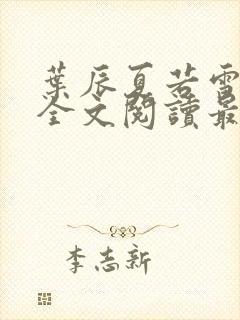 葉辰夏若雪
全文閱讀最
李志新